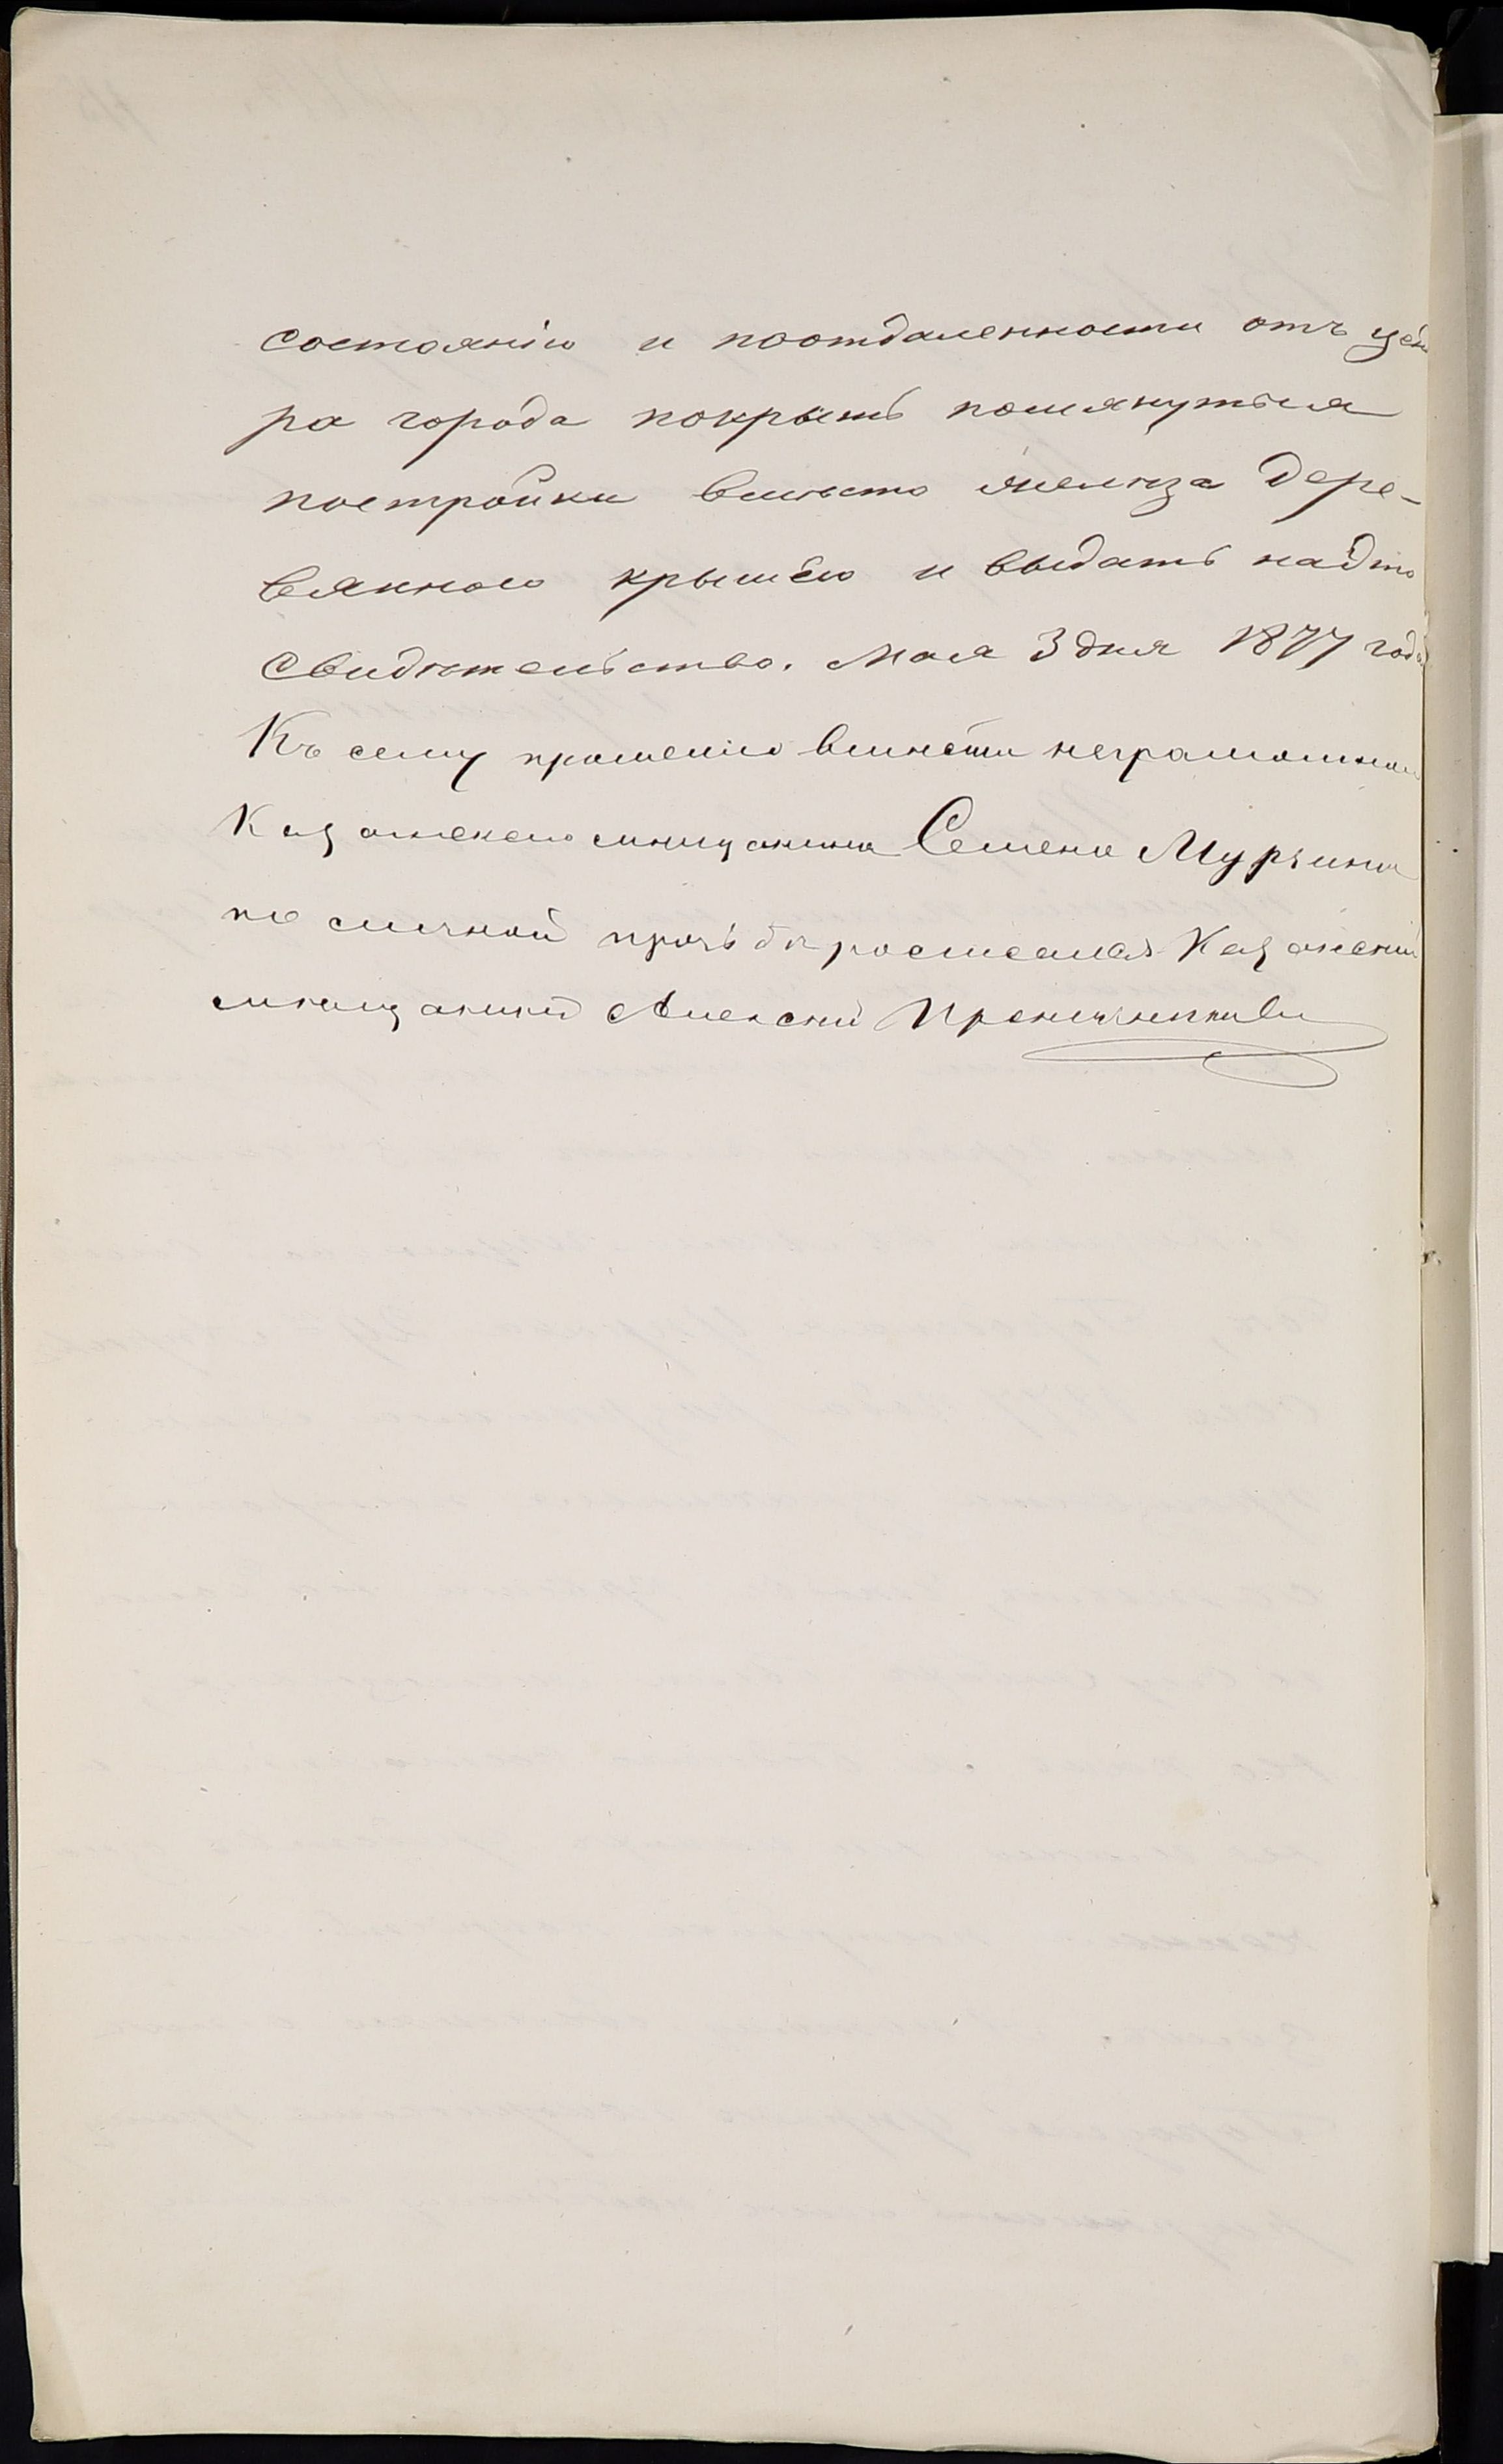 состоянію и поотдаленности отъ цен
ра города покрыть помянутыя
постройки вмѣсто желѣза дере-
вянною крышею и выдать надто
свидѣтельство. Мая 3 дня 1877 года
Къ сему прошенію вмѣсто неграмотнаго
Казанскаго мѣщанина Семена Мурзина
по личной прозьбѣ росписался Казанскій
мѣщанинъ Алексѣй